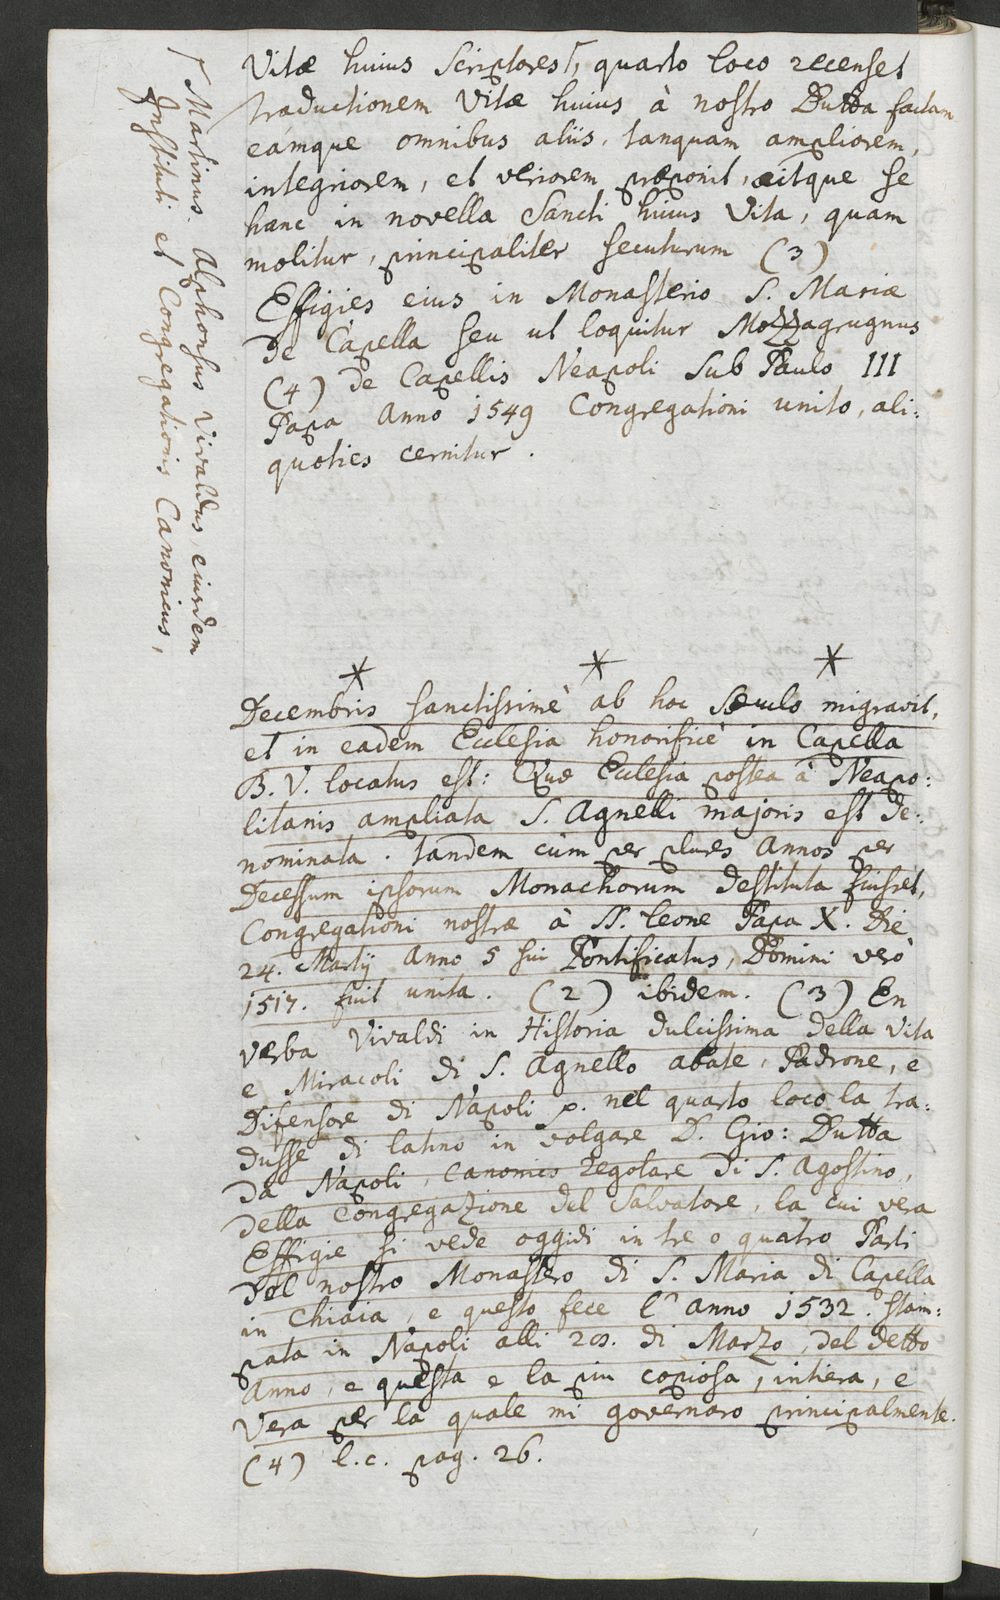 Vitæ huius Scriptores⌈, quarto loco recenset
traductionem Vitæ huius à nostro Dutta factam
eámque omnibus aliis, tanquam ampliorem,
integriorem, et veriorem præponit, aitque se
hanc in novella Sancti huius Vita, quam
molitur, principaliter secuturum (3)
Effigies eius in Monasterio S. Mariæ
de Capella seu ut loquitur Mozzagrugnus
(4) de Capellis Neapoli sub Paulo III
Papa Anno 1549 Congregationi unito, ali:
quoties cernitur.
⌈ Martinus. Alphonsus Vivaldus, eiusdem
Instituti et Congregationis Canonicus,
* * *
Decembris sanctissimè ab hoc sæculo migravit,
et in eadem Ecclesia honorificè in Capella
B. V. locatus est: Quæ Ecclesia postea à Neapo:
litanis ampliata S. Agnelli majoris est de:
nominata. tandem cùm per plures Annos per
Decessum ipsorum Monachorum destituta fuisset,
Congregationi nostræ à SS. Leone Papa X. Die
24. Martij Anno 5 sui Pontificatus, Domini verò
1517. fuit unita. (2) ibidem. (3) En
verba Vivaldi in Historia dulcissima della Vita
e Miracoli di S. Agnello abate, Padrone, e
Difensore di Napoli p. nel quarto loco la tra:
dusse di latino in volgare D. Gio: Dutta
da Napoli, canonico regolare di S. Agostino,
della Congregazione del Salvatore, la cui vera
Effigie si vede oggidi in tre o quatro Parti
del nostro Monastero di S. Maria di Capella
in Chiaia, e questo fece l'anno 1532. stam:
pata in Napoli alli 20. di Marzo, del detto
Anno, e questa e la piu copiosa, intiera, e
Vera per la quale mi governaro principalmente.
(4) l.c. pag. 26.